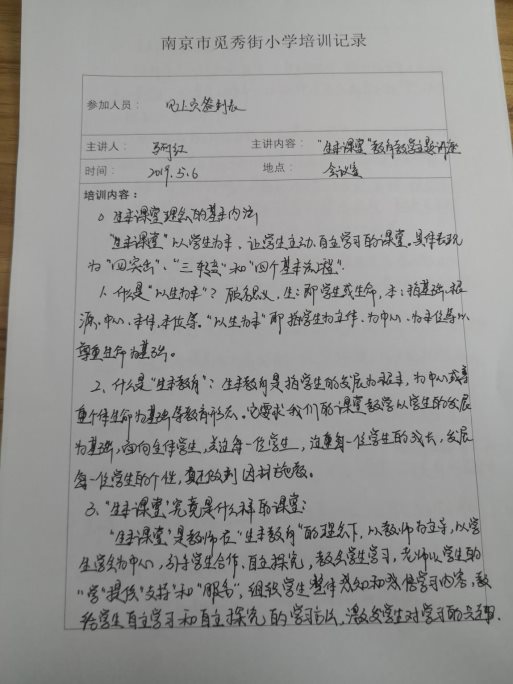 南京市觅秀街小学培训记录
参加人员： 见上页签到表
主讲人： 主讲内容： “生本课堂”教育教学主题讲座
时间： 2019.5.6 地点： 会议室
培训内容：
“生本课堂”理念的基本内涵
“生本课堂”以学生为本，让学生主动、自立学习的课堂。具体表现
为“四突出”、“三转变”和“四个基本流程”.
1. 什么是“以生为本”？顾名思义，生：即学生或生命，本：指基础、根
源、中心、本体、本位等。“以生为本”即指学生为主体、为中心、为本位等以
尊重生命为基础。
2. 什么是“生本教育”：生本教育是指学生的发展为根本，为中心或尊
重个体生命为基础等教育形态。它要求我们的课堂教学以学生的发展
为基础，面向全体学生，关注每一位学生，注重每一位学生的成长，发展
每一位学生的个性，真正做到因材施教。
3. “生本课堂”究竟是什么样的课堂：
“生本课堂”是教师在“生本教育”的理念下，以教师为主导，以学
生学为中心，引导学生合作、自立探究，教会学生学习，老师以学生的
“学”提供“支持”和“服务”，组织学生整体感知和感悟学习内容，教
给学生自立学习和自立探究的学习方法，激发学生对学习的兴趣.